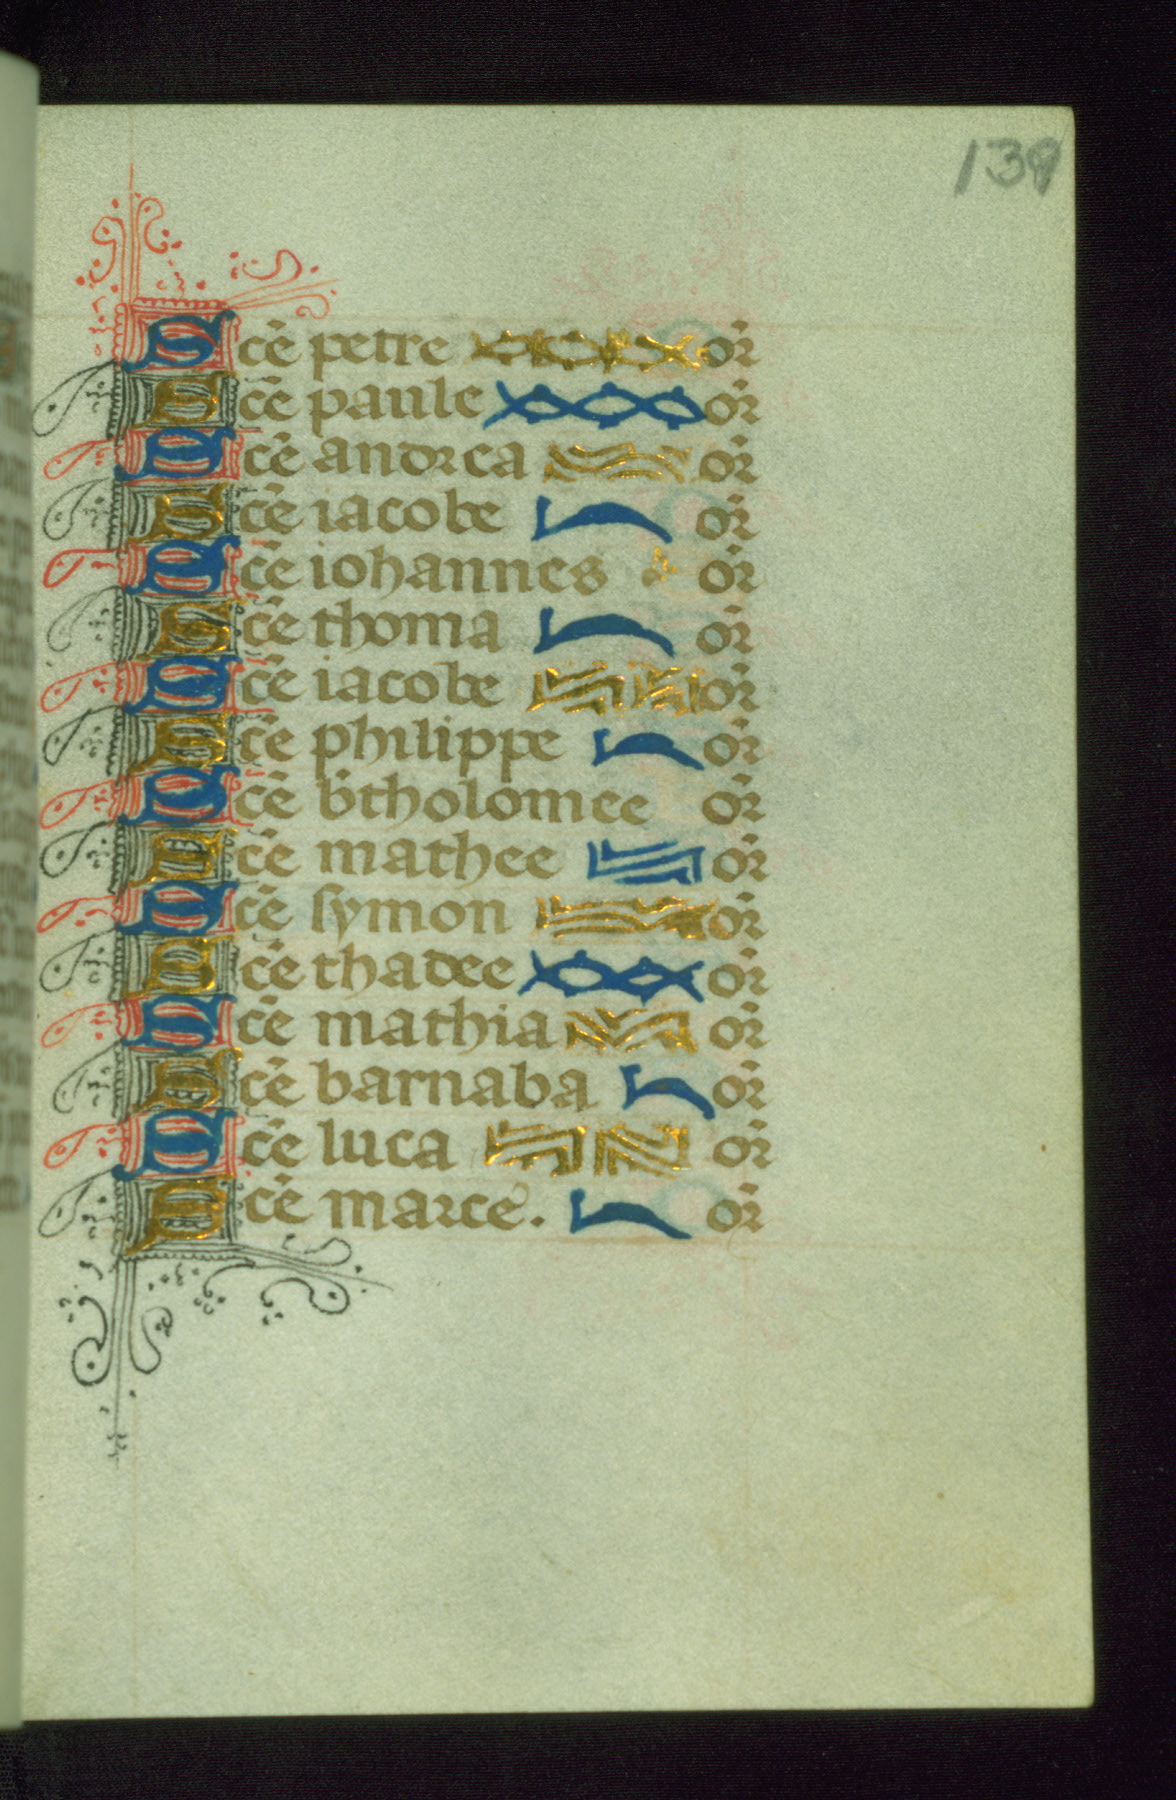 139
Scē petre or̄
Scē paule or̄
Scē andrea or̄
Scē iacobe or̄
Scē iohannes or̄
Scē thoma or̄
Scē iacobe or̄
Scē philippe or̄
Scē b̄tholomee or̄
Scē mathee or̄
Scē symon or̄
Scē thadee or̄
Scē mathia or̄
Scē barnaba or̄
Scē luca or̄
Scē marce. or̄